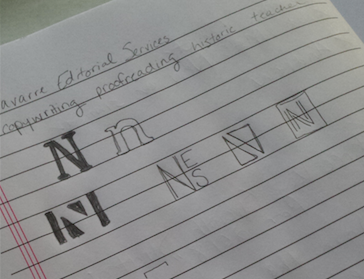 avarre Editorial Services
copywriting proofreading historic teacher
N n
N E S N N
N